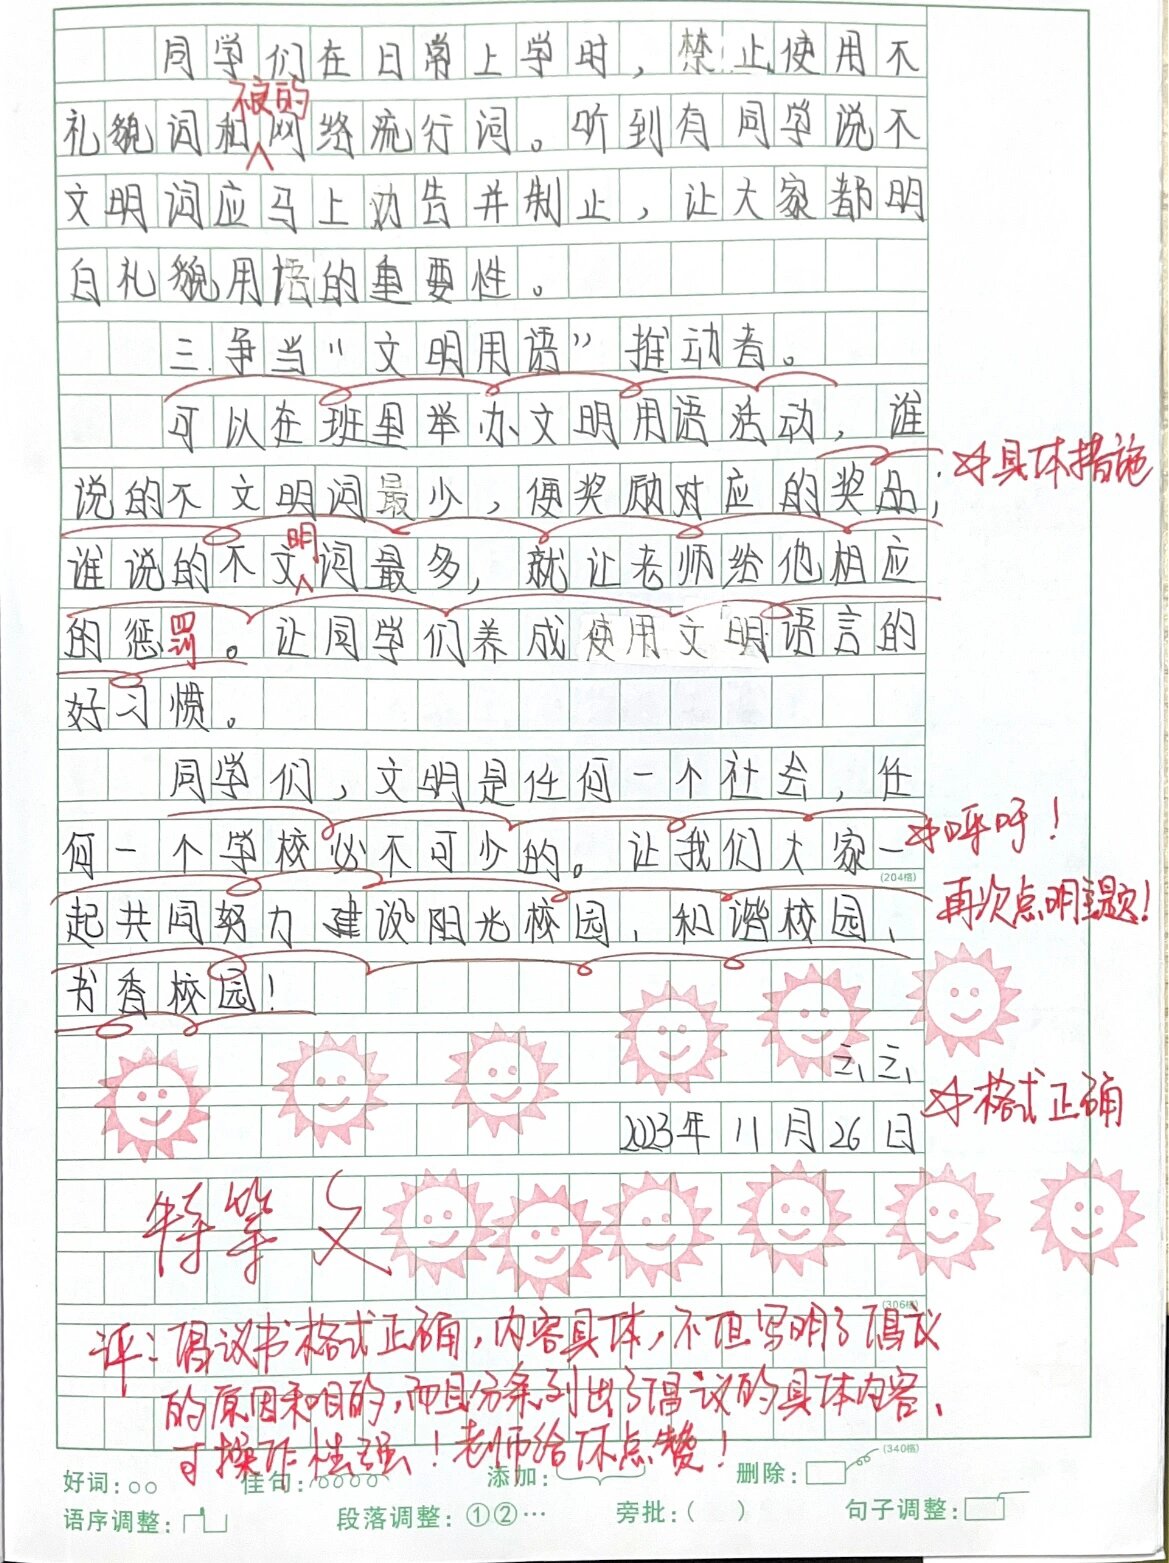 同学们在日常上学时，禁止使用不
不良的
礼貌词和网络流行词。听到有同学说不
文明词应马上劝告并制止，让大家都明
白礼貌用语的重要性。
三.争当“文明用语”推动者。
可以在班里举办文明用语活动，谁
说的不文明词最少，便奖励对应的奖品，
具体措施
明
谁说的不文词最多，就让老师给他相应
的惩罚。让同学们养成使用文明语言的
好习惯。
同学们，文明是任何一个社会，任
何一个学校必不可少的。让我们大家一
呼吁！
(204格)
起共同努力建设阳光校园、和谐校园、
再次点明主题！
书香校园！
2023年11月26日
格式正确
特等
(306格)
评：倡议书格式正确，内容具体，不但写明了倡议
的原因和目的，而且分条列出了倡议的具体内容、
可操作性强！老师给你点赞！
(340格)
好词：
佳句：
添加：
删除：
语序调整：
段落调整：①②…
旁批：（ ）
句子调整：